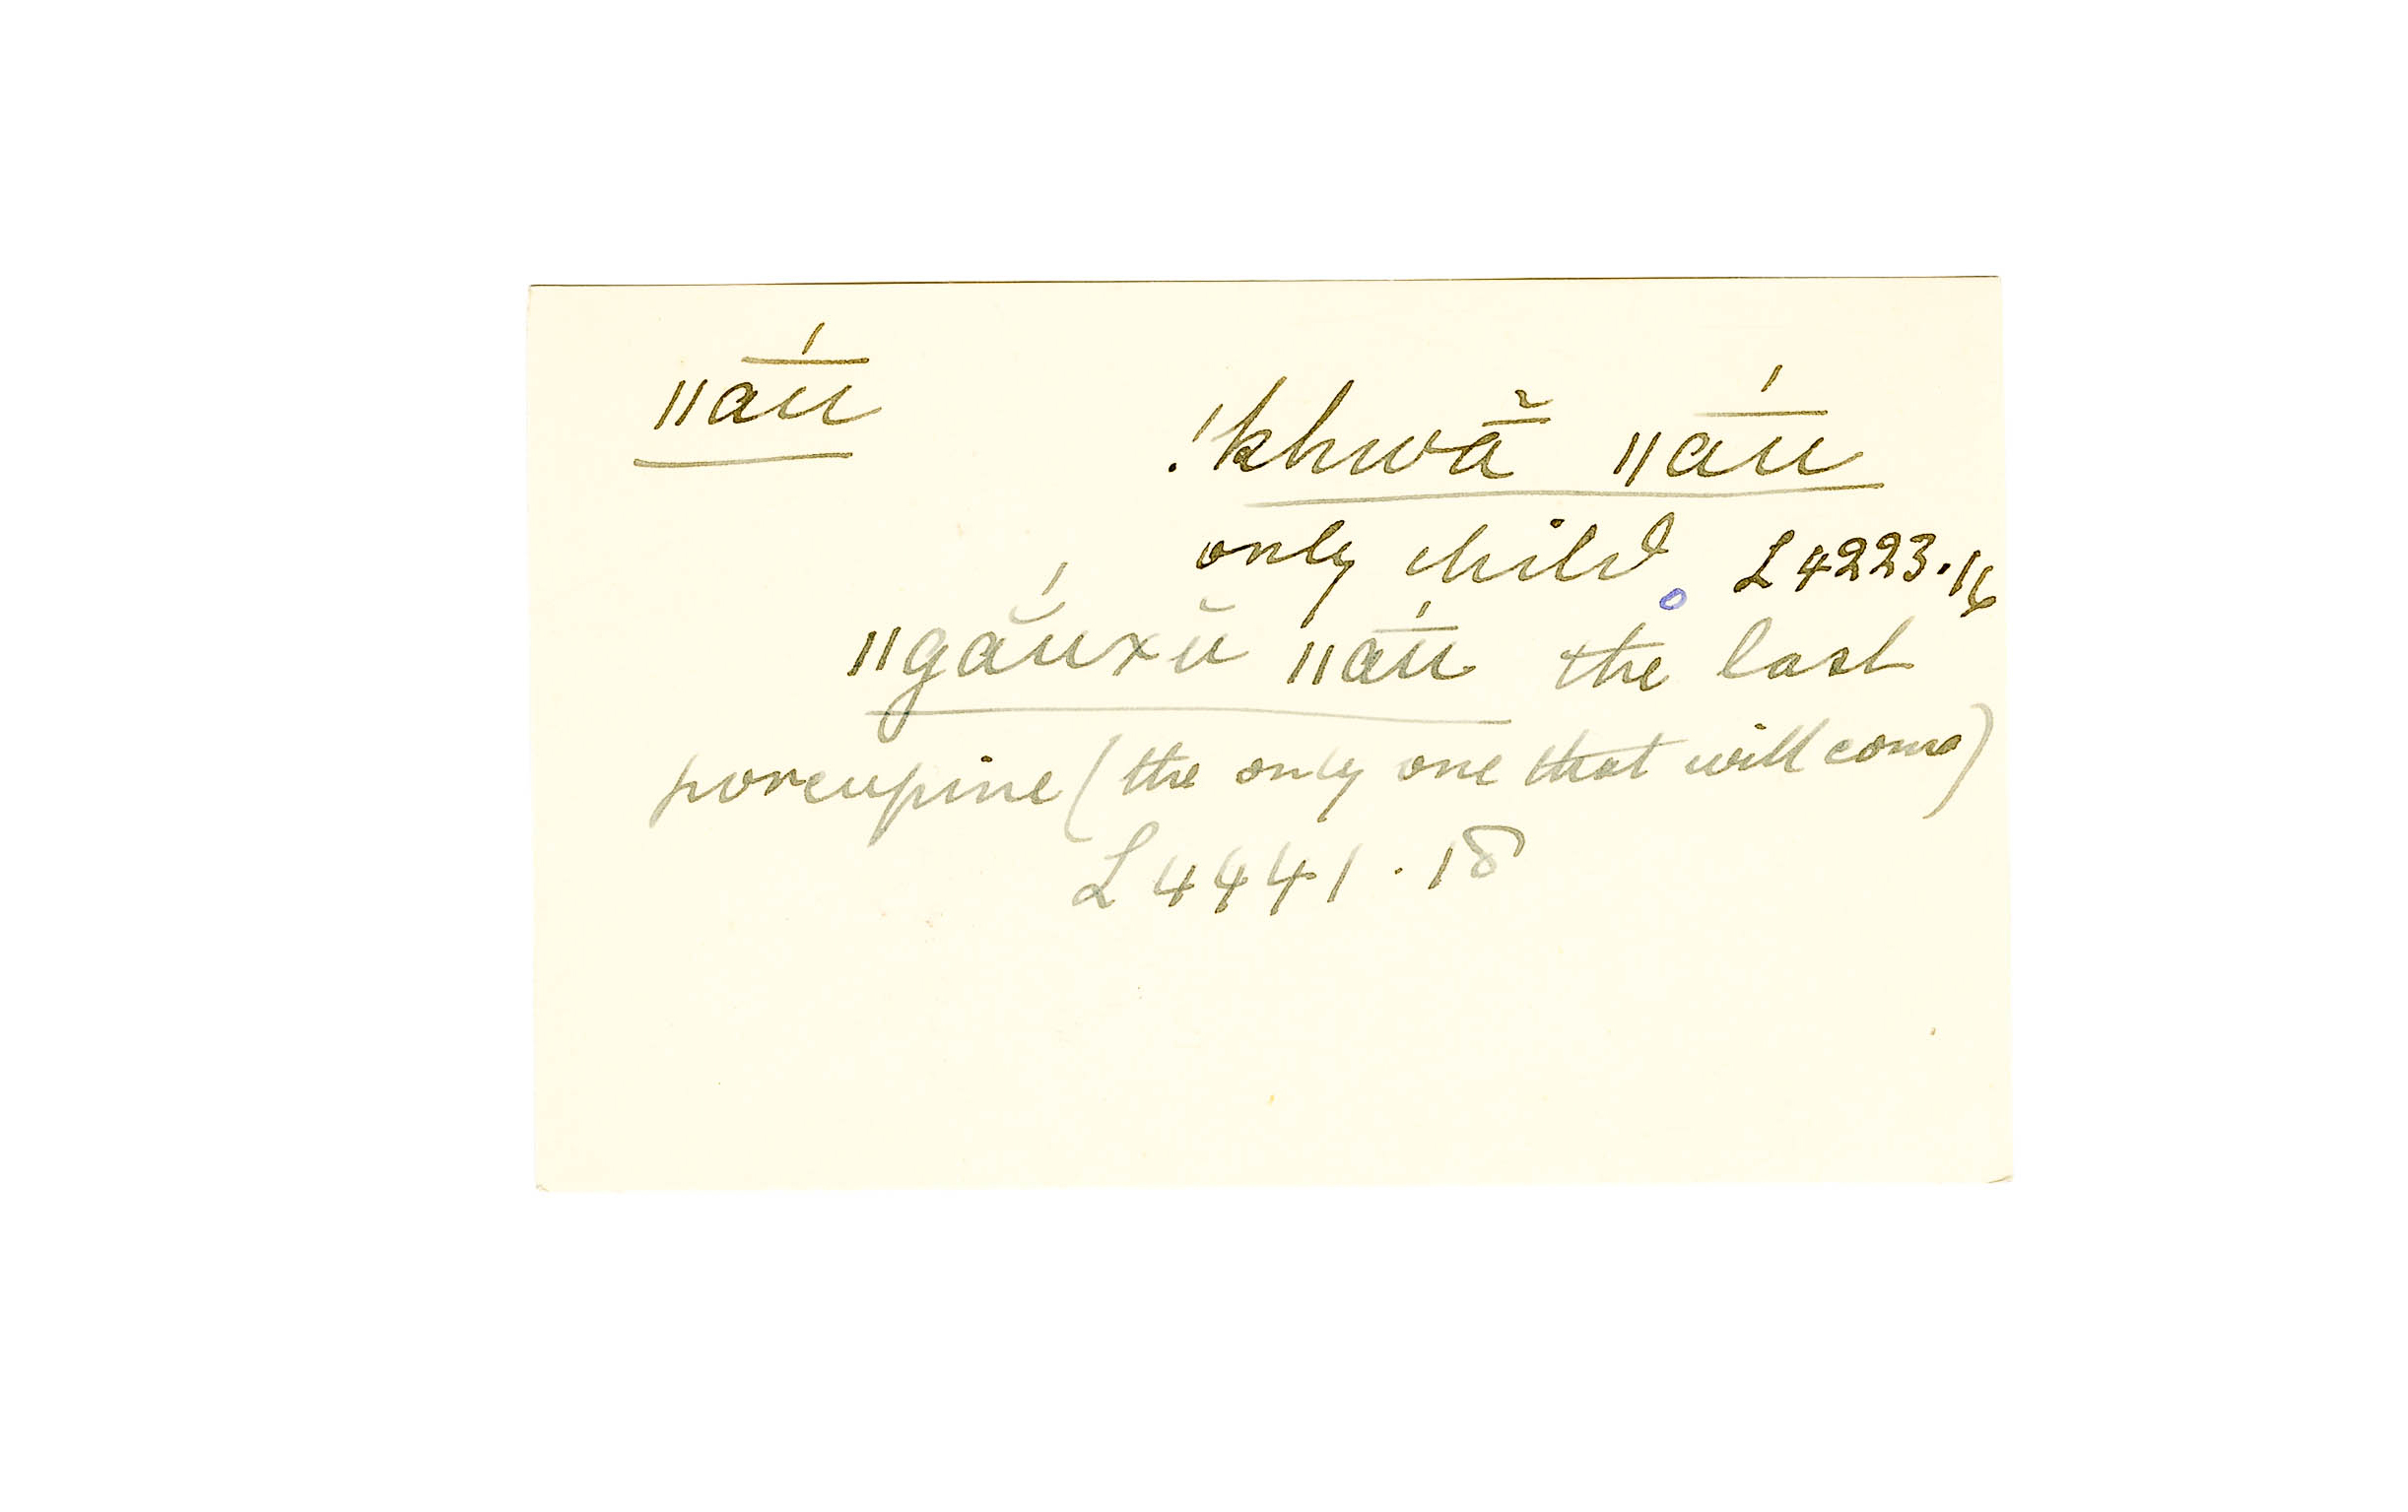 ǁa͞ú
!khwā̆ ǁa͞ú
only child L4223.16
ǁgắuxŭ ǁa͞ú the last
porcupine (the only one that will come)
L4441.18